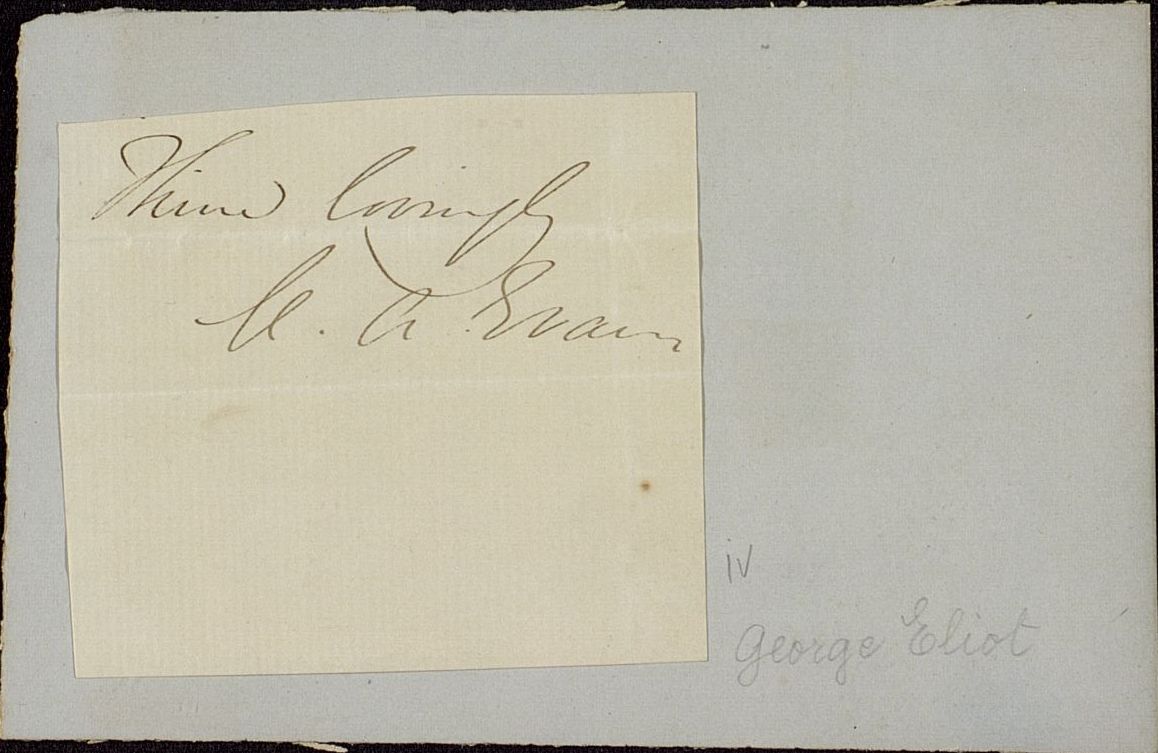 Thine lovingly
M. A. Evans
iv
George Eliot